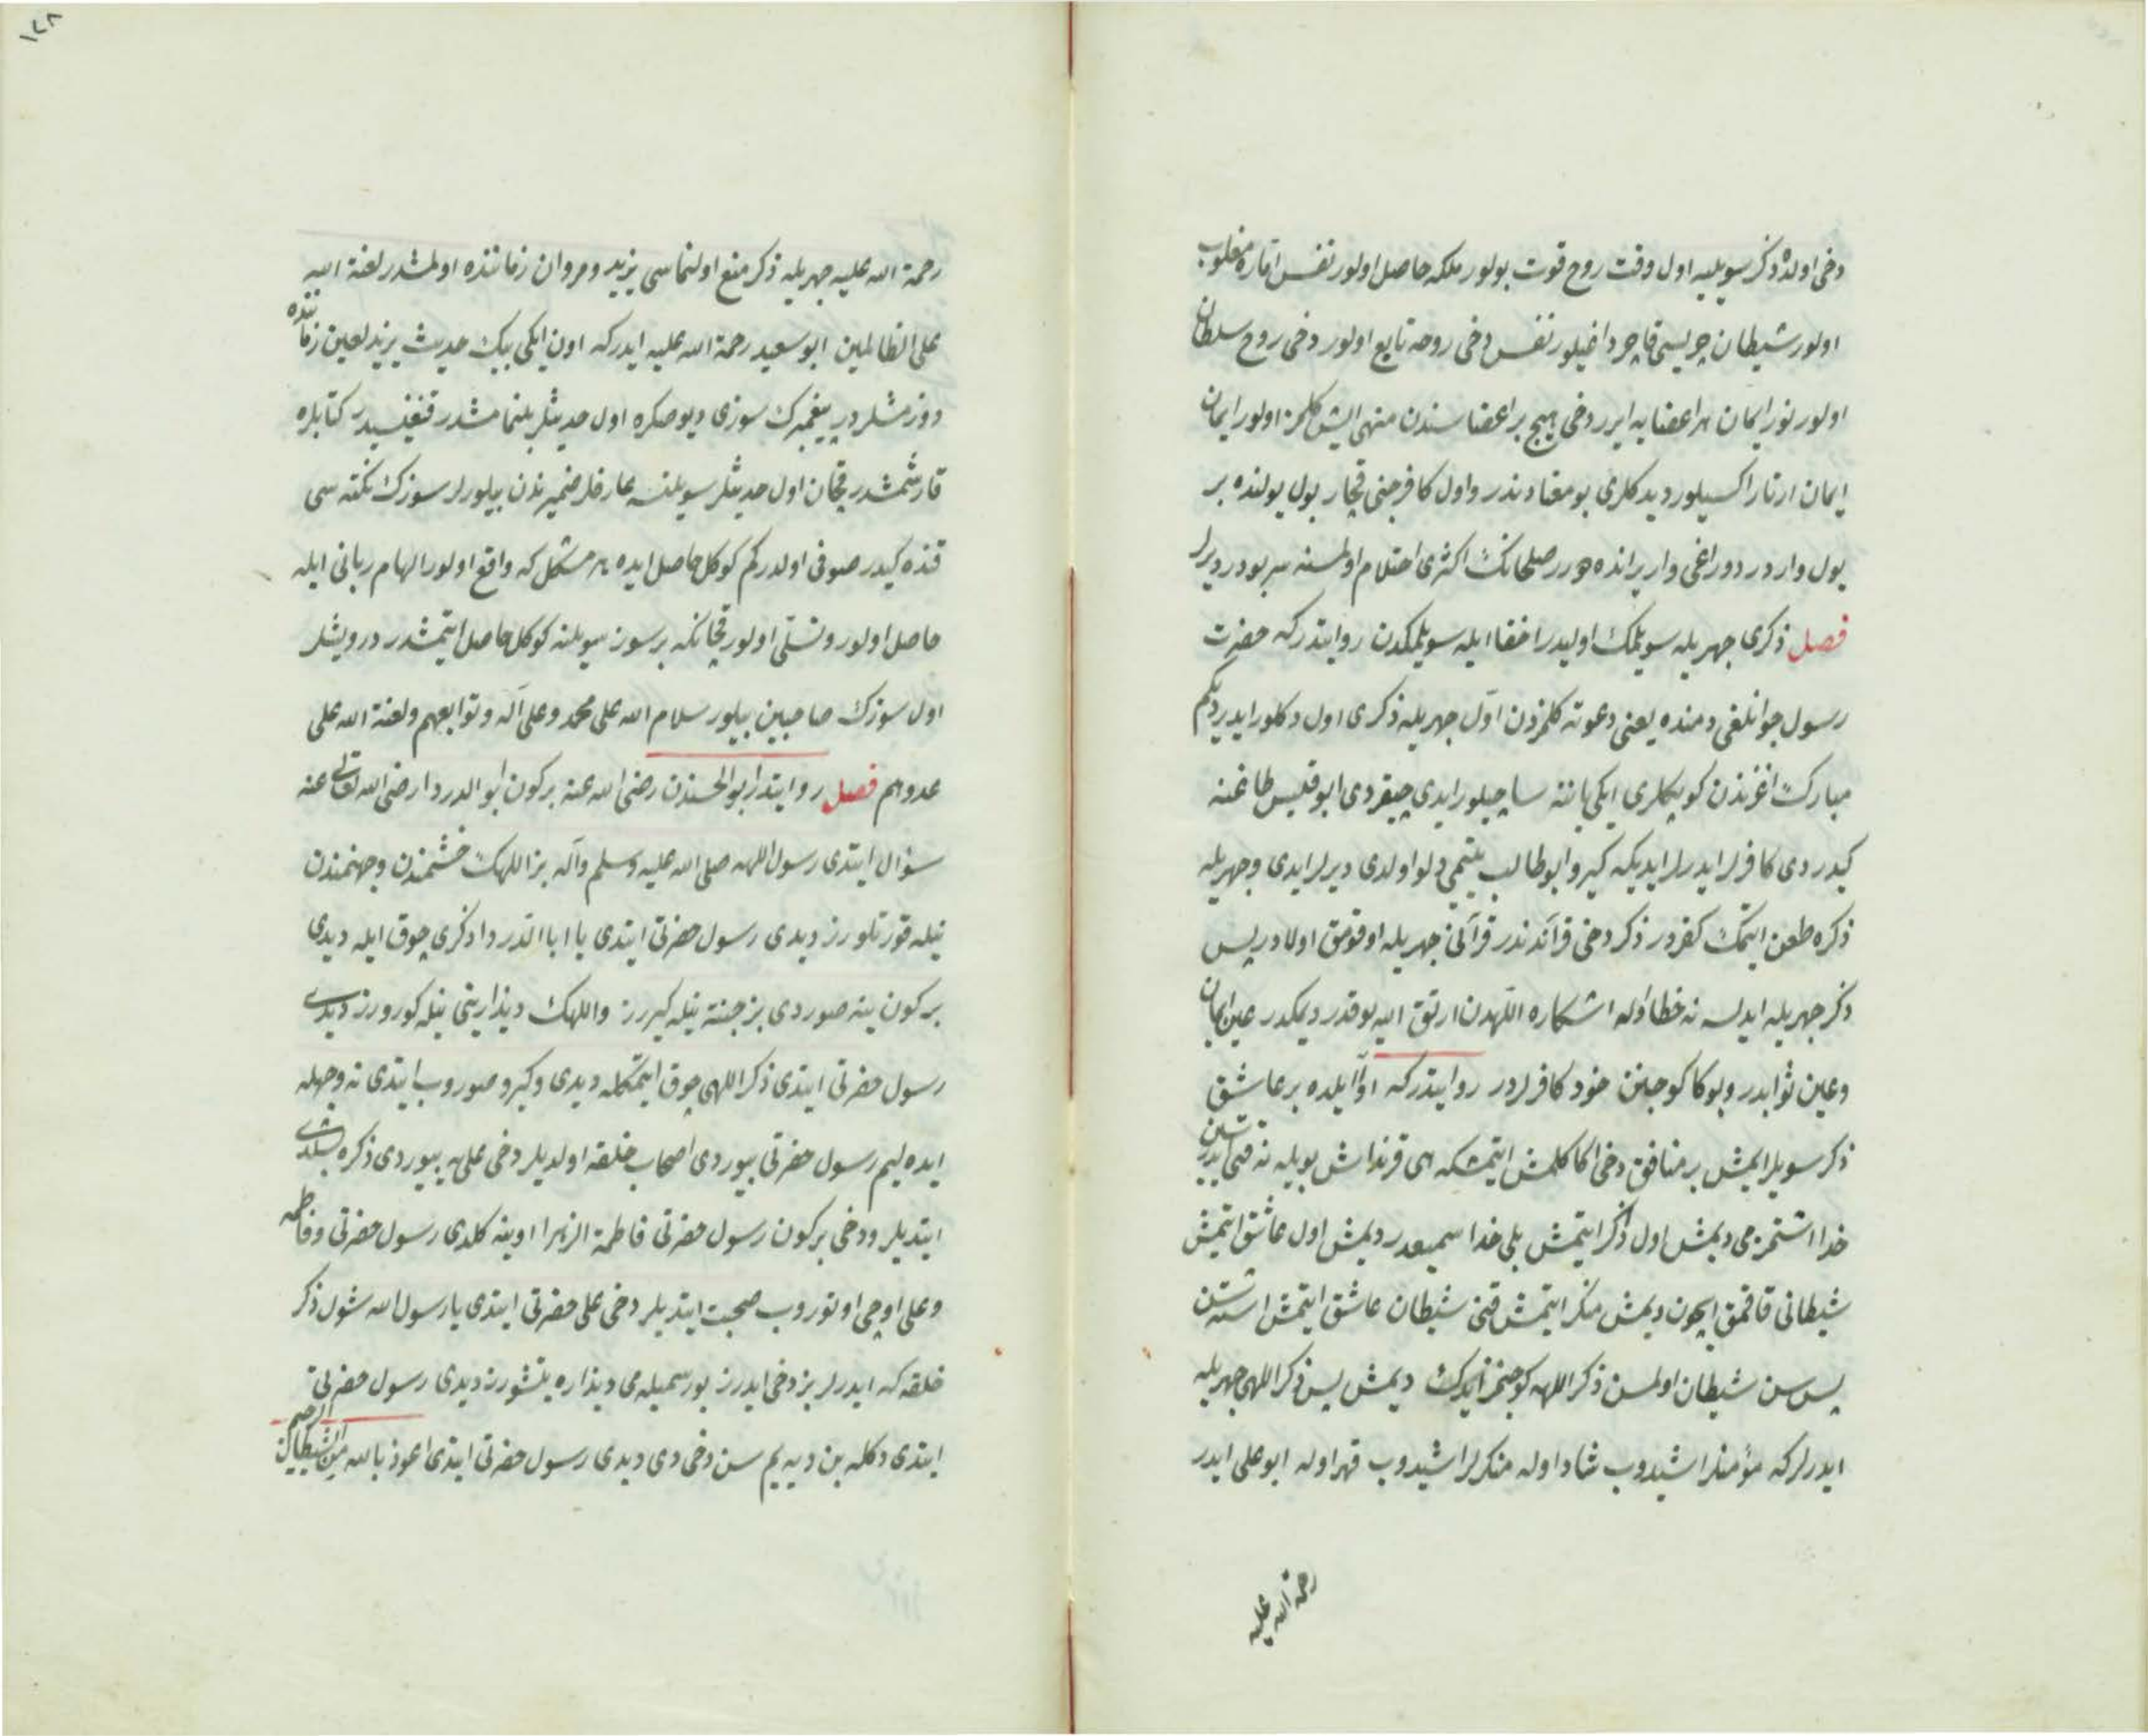 دخی اولدۀ ذکر سویلیه اول وقت روح قوت بولور ملکه حاصل اولور نفس اماره مغلوب
اولور شیطان چریسی قاچر داغیلور نفس دخی روحه تابع اولور دخی روح سلطان
اولور نور ایمان هر اعضایه ایرر دخی هیچ بر اعضاسندن منهی ایش کلمز اولور ایمان
ایمان ارتار اکسیلور دیدکلری بو معنادندر و اول کافر جنی قچار بول یولنده بر
یول واردر دوراغی وار یرانده صلحانک اکثری احتلام اولمسنه سر بودر دیرلر
فصل ذکری جهریله سویلمک اولیدر اخفا ایله سویلمکدن روایتدرکه حضرت
رسول جوانلغی دمنده یعنی دعوته کلمزدن اول جهریله ذکری اول دکلو ایدیردیکم
مبارک اغزندن کوپکلری ایکی یاننه ساچیلور ایدی چیقردی ابو قبیس طاغنه
کیدردی کافرلر ایدرلر ایدیکه کیرو ابو طالب یتیمی دلو اولدی دیرلر ایدی و جهریله
ذکره طعن ایتمک کفردر ذکر دخی قرآندندر قرآنی جهریله اوقومق اولادر پس
ذکر جهریله ایدلسه نه خطا اوله اشکاره اللهدن ارتق اله یوقدر دیمکدر عین ایمان
و عین ثوابدر و بوکا کوجینن خود کافرلردر روایتدرکه اوّا ایلده بر عاشق
ذکر سویلر ایمش بر منافق دخی اکا کلمش ایتمشکه ای قرنداش بویله نه قتی ایدرسن
خدا اشتمزمی دیمش اول ذکر ایتمش بلی خدا سمیعدر دیمش اول عاشق ایتمش
شیطانی قاقمق ایچون دیمش منکر ایتمش قنی شیطان عاشق ایتمش اشته سن
پس سن شیطان اولمسن ذکر اللهه کوجنمز ایدک دیمش پس ذکر اللهی جهریله
ایدرلرکه مؤمنلر اشیدوب شاد اوله منکرلر اشیدوب قهر اوله ابو علی ایدر
رحمة الله علیه
١٤٨
رحمة الله علیه جهریله ذکر منع اولنماسی یزید و مروان زماننده اولمشدر لعنة الله
علی الظالمین ابو سعید رحمة الله علیه ایدرکه اون ایکی بیک حدیث یزید لعین زماننده
دوزمشلردر پیغمبرک سوزی دیو صکره اول حدیثلر بلنمامشدر قنغیسیدر کتابلره
قارشمشدر قچان اول حدیثلر سویلنسه عارفلر ضمیرندن بیلورلر سوزک نکته سی
قنده کیدر صوفی اولدرکم کوکل حاصل ایده هر مشکل که واقع اولور الهام ربانی ایله
حاصل اولور و تسلّی اولور قچانکه بر سوز سویلنه کوکل حاصل ایتمشدر درویشلر
اول سوزک صاحبین بیلور سلام الله علی محمد و علی آله و توابعهم و لعنة الله علی
عدوهم فصل روایتدر ابو الحسندن رضی الله عنه بر کون ابو الدردا رضی الله تعالی عنه
سؤال ایتدی رسول اللهه صلی الله علیه وسلم وآله بز اللهک خشمندن و جهنمندن
نیله قورتلورز دیدی رسول حضرتی ایتدی یا ابا الدردا ذکری چوق ایله دیدی
بر کون ینه صوردی بز جنته نیله کیررز و اللهک دیدارینی نیله کورورز دیدی
رسول حضرتی ایتدی ذکر اللهی چوق ایتمکله دیدی و کیرو صوروب ایتدی نه وجهله
ایده لیم رسول حضرتی بیوردی اصحاب خلقه اولدیلر دخی علی یه بیوردی ذکره بشلدی
ایتدیلر و دخی بر کون رسول حضرتی فاطمة الزهرا اوینه کلدی رسول حضرتی و فاطمه
و علی اوچی اوتوروب صحبت ایتدیلر دخی علی حضرتی ایتدی یا رسول الله شول ذکر
خلقه که ایدرلر بز دخی ایدرز بو رسمیله می دیداره یتشورز دیدی رسول حضرتی
ایتدی دکله بن دیه یم سن دخی دی دیدی رسول حضرتی ایتدی اعوذ بالله من الشیطان الرجیم